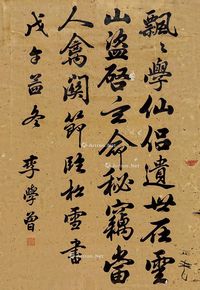 飄飄學仙侶遺世在雲
山盜啓主命秘竊當
人禽關節臨松雪書
戊午孟冬
李學曾